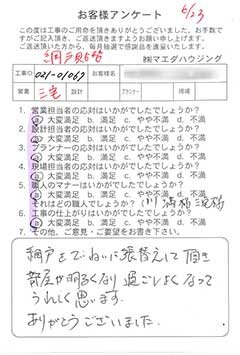 お客様アンケート 6/23
この度は工事のご用命を頂きありがとうございました。お手数で
すがご記入頂き、ご返送頂きますようお願い申し上げます。
ご返送頂いた方から、毎月抽選で感謝品を進呈いたします。
網戸張替 ㈱マエダハウジング
工事ID 021-01067 お客様名
営業 三宅 設計 プランナー 現場
1. 営業担当者の応対はいかがでしたでしょうか?
a. 大変満足 b. 満足 c. やや不満 d. 不満
2. 設計担当者の応対はいかがでしたでしょうか?
a. 大変満足 b. 満足 c. やや不満 d. 不満
3. プランナーの応対はいかがでしたでしょうか?
a. 大変満足 b. 満足 c. やや不満 d. 不満
4. 現場担当者の応対はいかがでしたでしょうか?
a. 大変満足 b. 満足 c. やや不満 d. 不満
5. 職人のマナーはいかがでしたでしょうか?
a. 大変満足 b. 満足 c. やや不満 d. 不満
それはどの職人でしょうか?
6. 工事の仕上がりはいかがでしたでしょうか?
a. 大変満足 b. 満足 c. やや不満 d. 不満
7. その他、ご意見・ご要望をお書き下さい。
網戸をていねいに張替えして頂き
部屋が明るくなり過ごしよくなって
うれしく思います。
ありがとうございました。